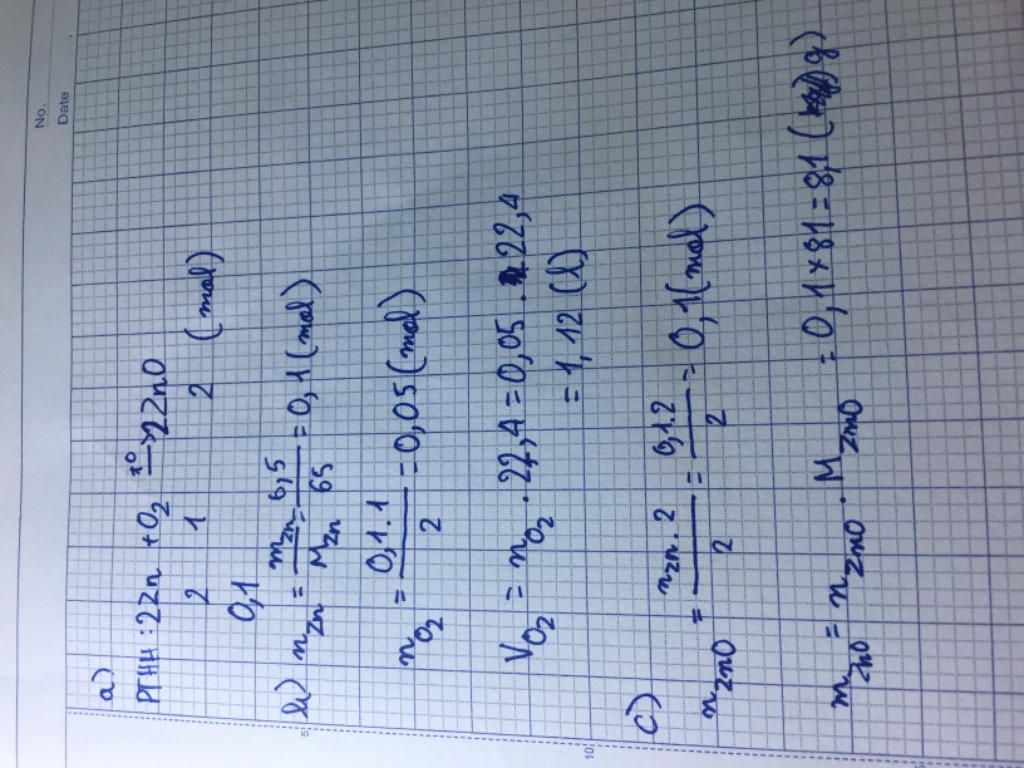 No.
Date
a)
PTHH : 2Zn + O2 t° → 2ZnO
2 1 2 (mol)
0,1
b) nZn = mZn / MZn = 6,5 / 65 = 0,1 (mol)
5
nO2 = 0,1.1 / 2 = 0,05 (mol)
VO2 = nO2 . 22,4 = 0,05 . 22,4
= 1,12 (l)
10
c)
nZnO = nZn . 2 / 2 = 0,1.2 / 2 = 0,1 (mol)
mZnO = nZnO . MZnO = 0,1 × 81 = 8,1 (g)